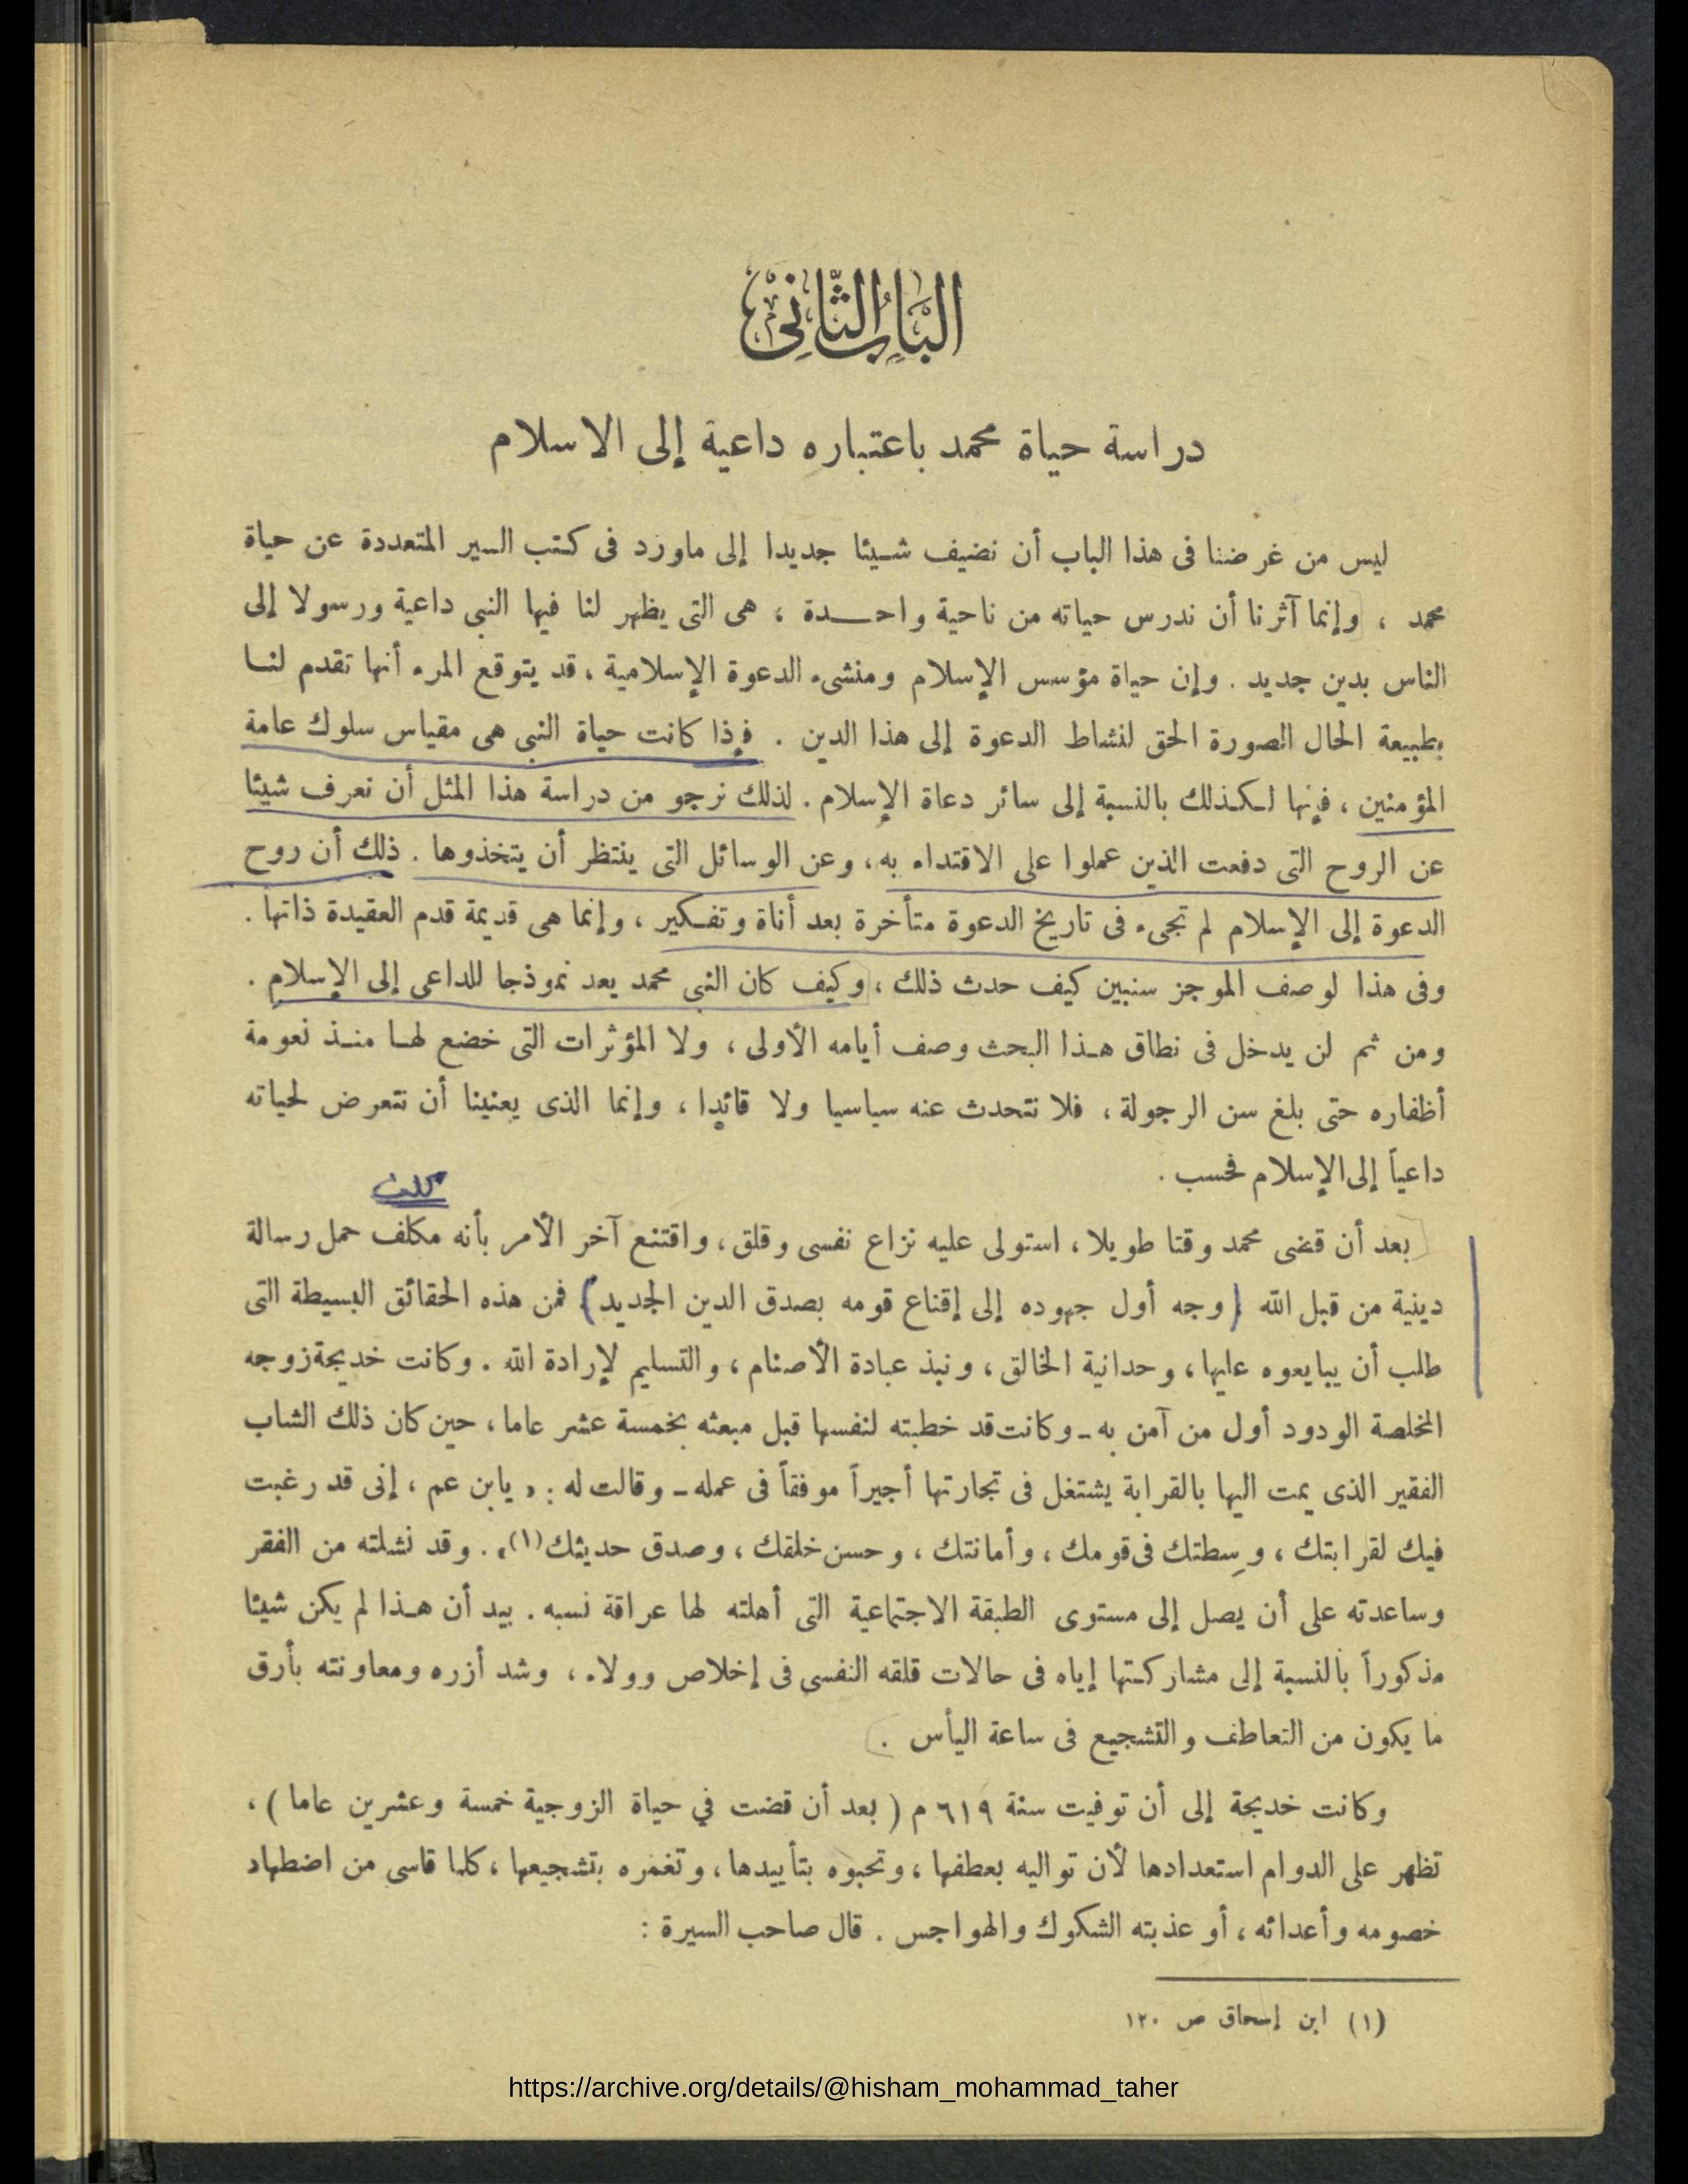 الباب الثاني
دراسة حياة محمد باعتباره داعية إلى الاسلام
ليس من غرضنا فى هذا الباب أن نضيف شيئا جديدا إلى ماورد فى كتب السير المتعددة عن حياة
محمد ، وإنما آثرنا أن ندرس حياته من ناحية واحدة ، هى التى يظهر لنا فيها النبى داعية ورسولا إلى
الناس بدين جديد . وإن حياة مؤسس الإسلام ومنشىء الدعوة الإسلامية ، قد يتوقع المرء أنها تقدم لنا
بطبيعة الحال الصورة الحق لنشاط الدعوة إلى هذا الدين . فإذا كانت حياة النبى هى مقياس سلوك عامة
المؤمنين ، فإنها لكذلك بالنسبة إلى سائر دعاة الإسلام . لذلك نرجو من دراسة هذا المثل أن نعرف شيئا
عن الروح التى دفعت الذين عملوا على الاقتداء به ، وعن الوسائل التى ينتظر أن يتخذوها . ذلك أن روح
الدعوة إلى الإسلام لم تجىء فى تاريخ الدعوة متأخرة بعد أناة وتفكير ، وإنما هى قديمة قدم العقيدة ذاتها .
وفى هذا لوصف الموجز سنبين كيف حدث ذلك ، وكيف كان النبى محمد يعد نموذجا للداعى إلى الإسلام .
ومن ثم لن يدخل فى نطاق هذا البحث وصف أيامه الأولى ، ولا المؤثرات التى خضع لها منذ نعومة
أظفاره حتى بلغ سن الرجولة ، فلا نتحدث عنه سياسيا ولا قائدا ، وإنما الذى يعنينا أن نتعرض لحياته
داعياً إلى الإسلام فحسب .
كلف
بعد أن قضى محمد وقتا طويلا ، استولى عليه نزاع نفسى وقلق ، واقتنع آخر الأمر بأنه مكلف حمل رسالة
دينية من قبل الله ( وجه أول جهوده إلى إقناع قومه بصدق الدين الجديد ) فمن هذه الحقائق البسيطة التى
طلب أن يبايعوه عليها ، وحدانية الخالق ، ونبذ عبادة الأصنام ، والتسليم لإرادة الله . وكانت خديجة زوجه
المخلصة الودود أول من آمن به ـ وكانت قد خطبته لنفسها قبل مبعثه بخمسة عشر عاما ، حين كان ذلك الشاب
الفقير الذى يمت اليها بالقرابة يشتغل فى تجارتها أجيراً موفقاً فى عمله ـ وقالت له : « يابن عم ، إنى قد رغبت
فيك لقرابتك ، وسِطتك فى قومك ، وأمانتك ، وحسن خلقك ، وصدق حديثك (١) » . وقد نشلته من الفقر
وساعدته على أن يصل إلى مستوى الطبقة الاجتماعية التى أهلته لها عراقة نسبه . بيد أن هذا لم يكن شيئا
مذكوراً بالنسبة إلى مشاركتها إياه فى حالات قلقه النفسى فى إخلاص وولاء ، وشد أزره ومعاونته بأرق
ما يكون من التعاطف والتشجيع فى ساعة اليأس .
وكانت خديجة إلى أن توفيت سنة ٦١٩ م ( بعد أن قضت في حياة الزوجية خمسة وعشرين عاما ) ،
تظهر على الدوام استعدادها لأن تواليه بعطفها ، وتحبوه بتأييدها ، وتغمره بتشجيعها ، كلما قاسى من اضطهاد
خصومه وأعدائه ، أو عذبته الشكوك والهواجس . قال صاحب السيرة :
(١) ابن إسحاق ص ١٢٠
https://archive.org/details/@hisham_mohammad_taher